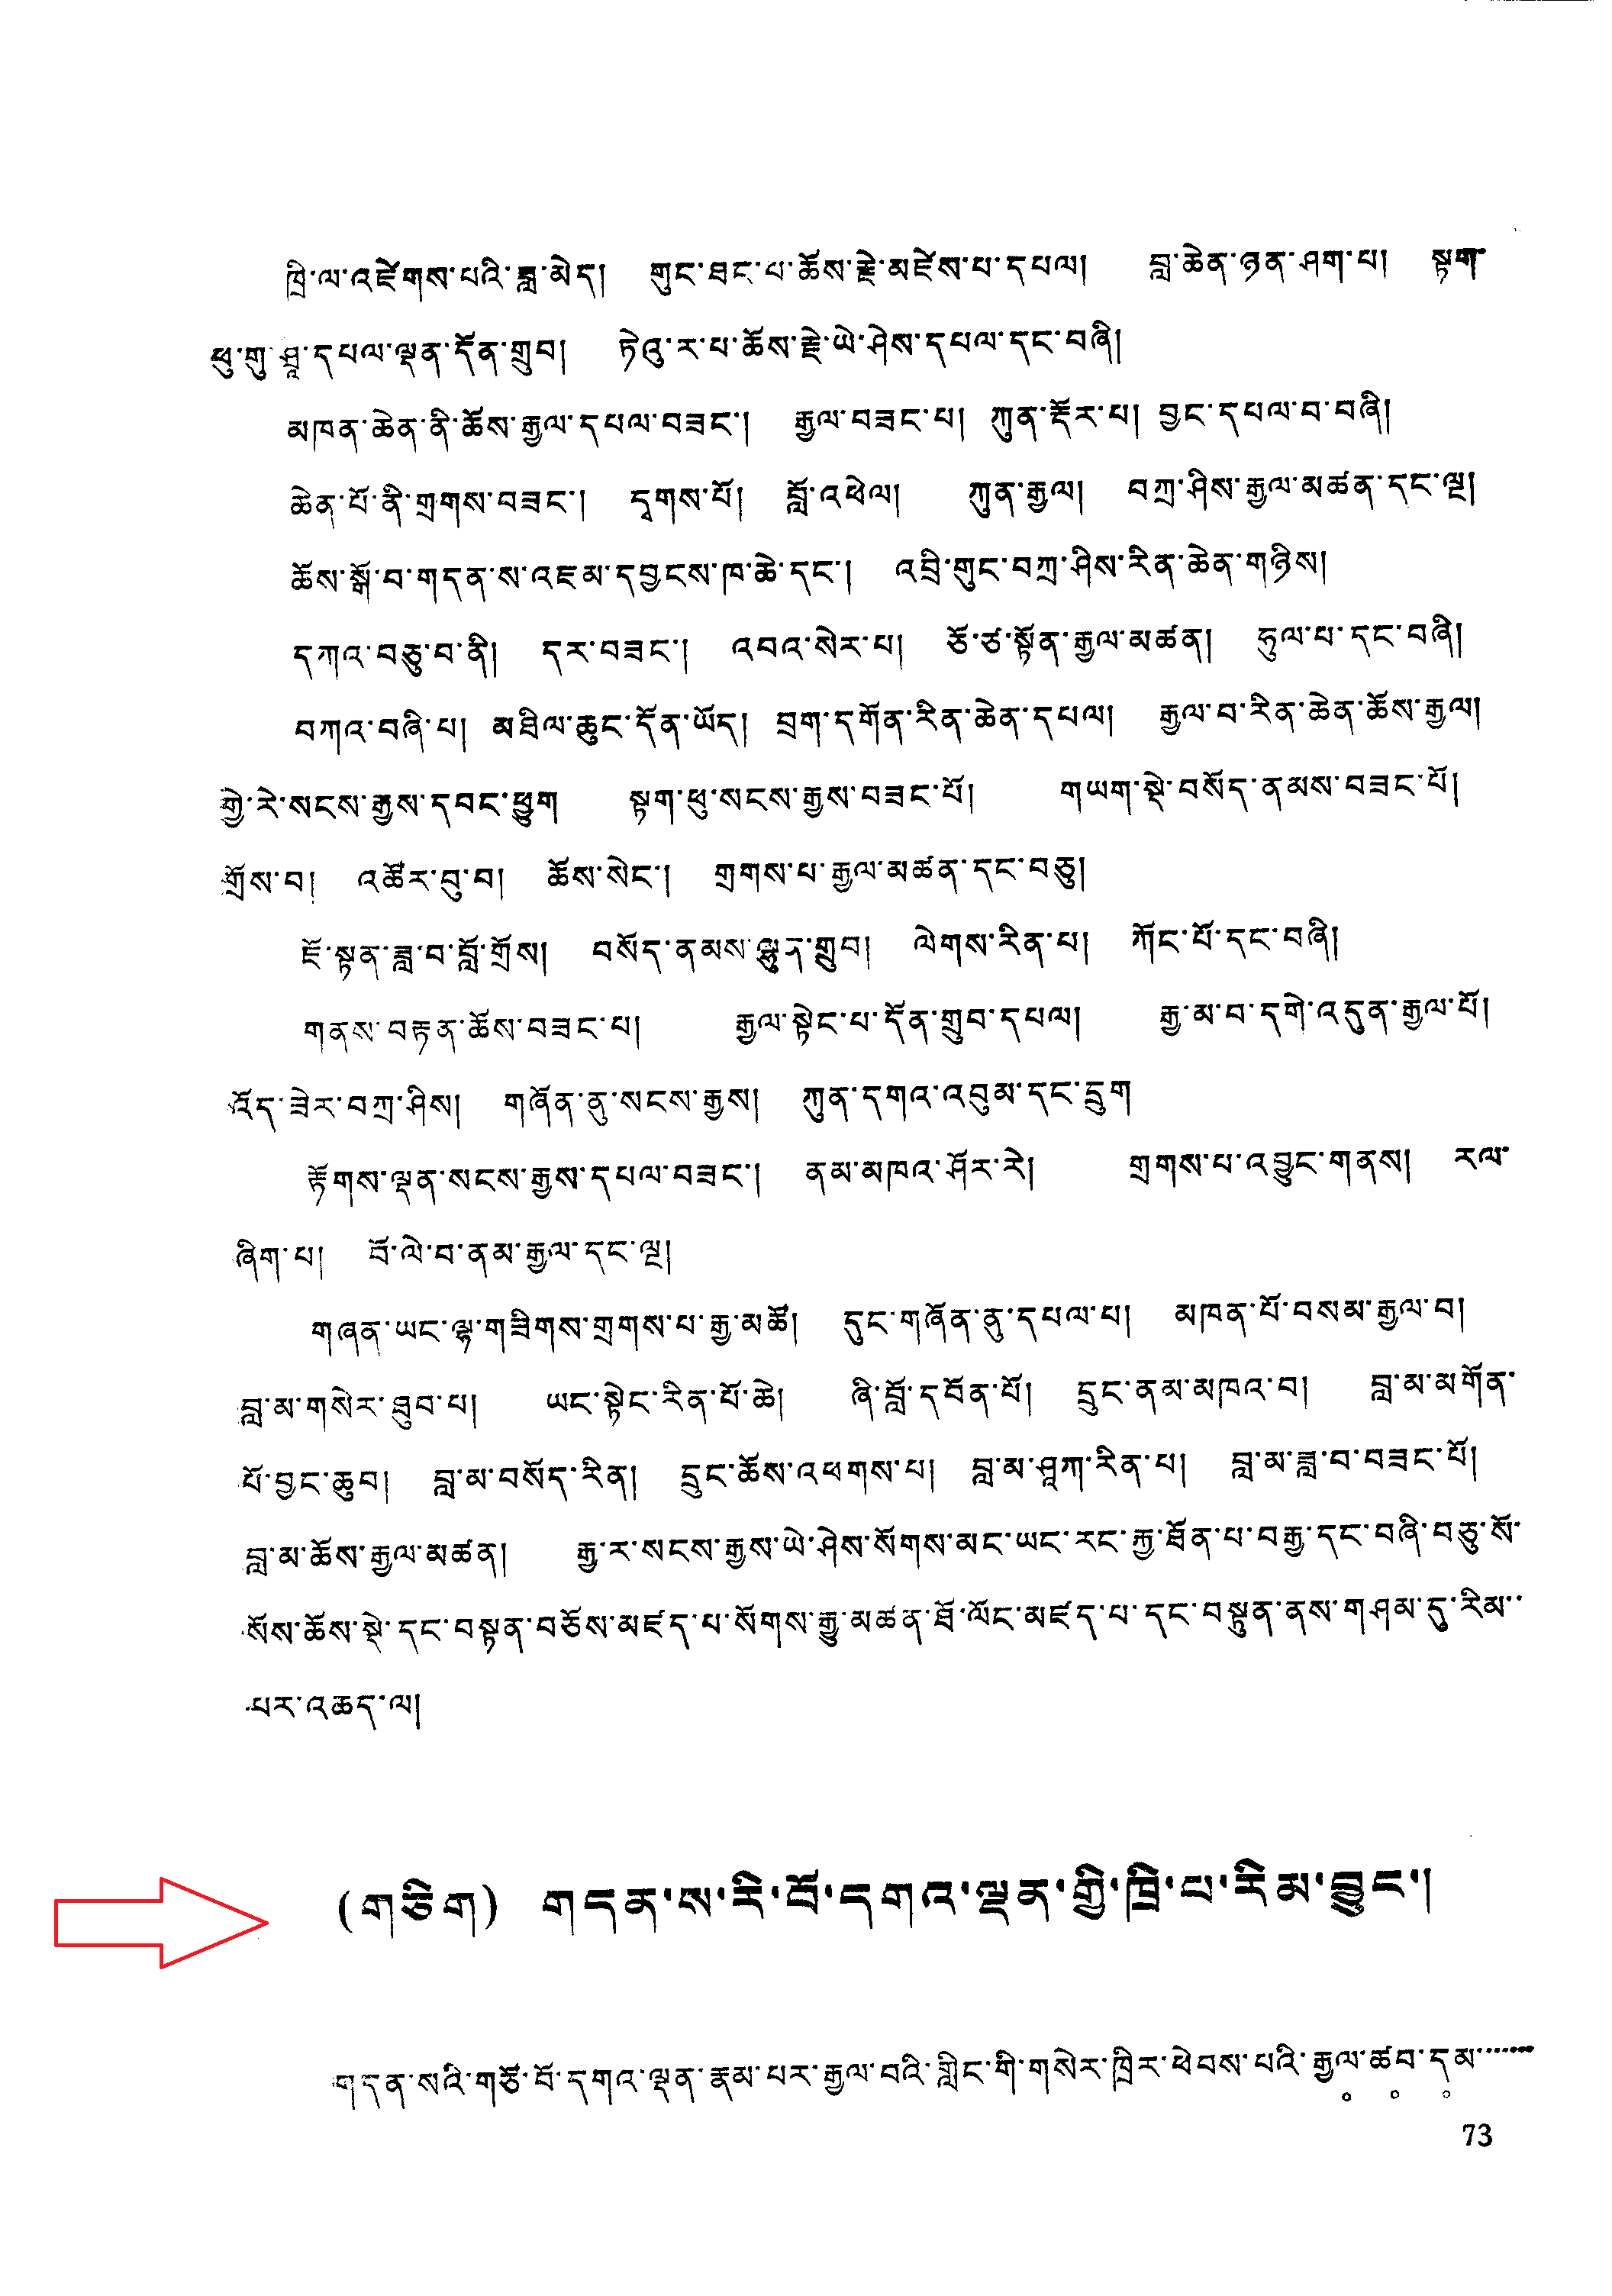 ཁྲི་ལ་འཛེགས་པའི་ཟླ་མེད། གུང་ཐང་པ་ཆོས་རྗེ་མཛེས་པ་དཔལ། བླ་ཆེན་ཉན་ཤག་པ། སྟག་
ཕུ་གུ་ཤྲཱི་དཔལ་ལྡན་དོན་གྲུབ། ཏེའུ་ར་པ་ཆོས་རྗེ་ཡེ་ཤེས་དཔལ་དང་བཞི།
མཁན་ཆེན་ནི་ཆོས་རྒྱལ་དཔལ་བཟང་། རྒྱལ་བཟང་པ། ཀུན་རྡོར་པ། བྱང་དཔལ་བ་བཞི།
ཆེན་པོ་ནི་གྲགས་བཟང་། དྭགས་པོ། བློ་འཕེལ། ཀུན་རྒྱལ། བཀྲ་ཤིས་རྒྱལ་མཚན་དང་ལྔ།
ཆོས་སྒོ་བ་གདན་ས་འཇམ་དབྱངས་ཁ་ཆེ་དང་། འབྲི་གུང་བཀྲ་ཤིས་རིན་ཆེན་གཉིས།
དཀའ་བཅུ་བ་ནི། དར་བཟང་། འབའ་སེར་པ། ཙོ་ཙ་སྟོན་རྒྱལ་མཚན། ཧུལ་པ་དང་བཞི།
བཀའ་བཞི་པ། མཐིལ་ཆུང་དོན་ཡོད། བྲག་དགོན་རིན་ཆེན་དཔལ། རྒྱལ་བ་རིན་ཆེན་ཆོས་རྒྱལ།
གྱེ་རེ་སངས་རྒྱས་དབང་ཕྱུག སྟག་ཕུ་སངས་རྒྱས་བཟང་པོ། གཡག་སྡེ་བསོད་ནམས་བཟང་པོ།
གྲོས་བ། འཚོར་བུ་བ། ཆོས་སེང་། གྲགས་པ་རྒྱལ་མཚན་དང་བཅུ།
ཇོ་སྟན་ཟླ་བ་བློ་གྲོས། བསོད་ནམས་ལྷུན་གྲུབ། ལེགས་རིན་པ། ཀོང་པོ་དང་བཞི།
གནས་བརྟན་ཆོས་བཟང་པ། རྒྱལ་སྟེང་པ་དོན་གྲུབ་དཔལ། རྒྱ་མ་བ་དགེ་འདུན་རྒྱལ་པོ།
འོད་ཟེར་བཀྲ་ཤིས། གཞོན་ནུ་སངས་རྒྱས། ཀུན་དགའ་འབུམ་དང་དྲུག
རྟོགས་ལྡན་སངས་རྒྱས་དཔལ་བཟང་། ནམ་མཁའ་ཤོར་རེ། གྲགས་པ་འབྱུང་གནས། རལ་
ཞིག་པ། བོ་ལེ་བ་ནམ་རྒྱལ་དང་ལྔ།
གཞན་ཡང་ལྷ་གཟིགས་གྲགས་པ་རྒྱ་མཚོ། དུང་གཞོན་ནུ་དཔལ་པ། མཁན་པོ་བསམ་རྒྱལ་བ།
བླ་མ་གསེར་ཐུབ་པ། ཡང་སྟེང་རིན་པོ་ཆེ། ཞི་བློ་དབོན་པོ། དྲུང་ནམ་མཁའ་བ། བླ་མ་མགོན་
པོ་བྱང་ཆུབ། བླ་མ་བསོད་རིན། དྲུང་ཆོས་འཕགས་པ། བླ་མ་ཤཱཀ་རིན་པ། བླ་མ་ཟླ་བ་བཟང་པོ།
བླ་མ་ཆོས་རྒྱལ་མཚན། རྒྱ་ར་སངས་རྒྱས་ཡེ་ཤེས་སོགས་མང་ཡང་རང་རྐྱ་ཐོན་པ་བརྒྱ་དང་བཞི་བཅུ་སོ་
སོས་ཆོས་སྡེ་དང་བསྟན་བཅོས་མཛད་པ་སོགས་རྒྱུ་མཚན་ཐོ་ལོང་མཛད་པ་དང་བསྟུན་ནས་གཤམ་དུ་རིམ་་
པར་འཆད་ལ།
(གཅིག) གདན་ས་རི་བོ་དགའ་ལྡན་གྱི་ཁྲི་པ་རིམ་བྱུང་།
གདན་སའི་གཙོ་བོ་དགའ་ལྡན་རྣམ་པར་རྒྱལ་བའི་གླིང་གི་གསེར་ཁྲིར་ཕེབས་པའི་རྒྱལ་ཚབ་དམ་་་་་་
73